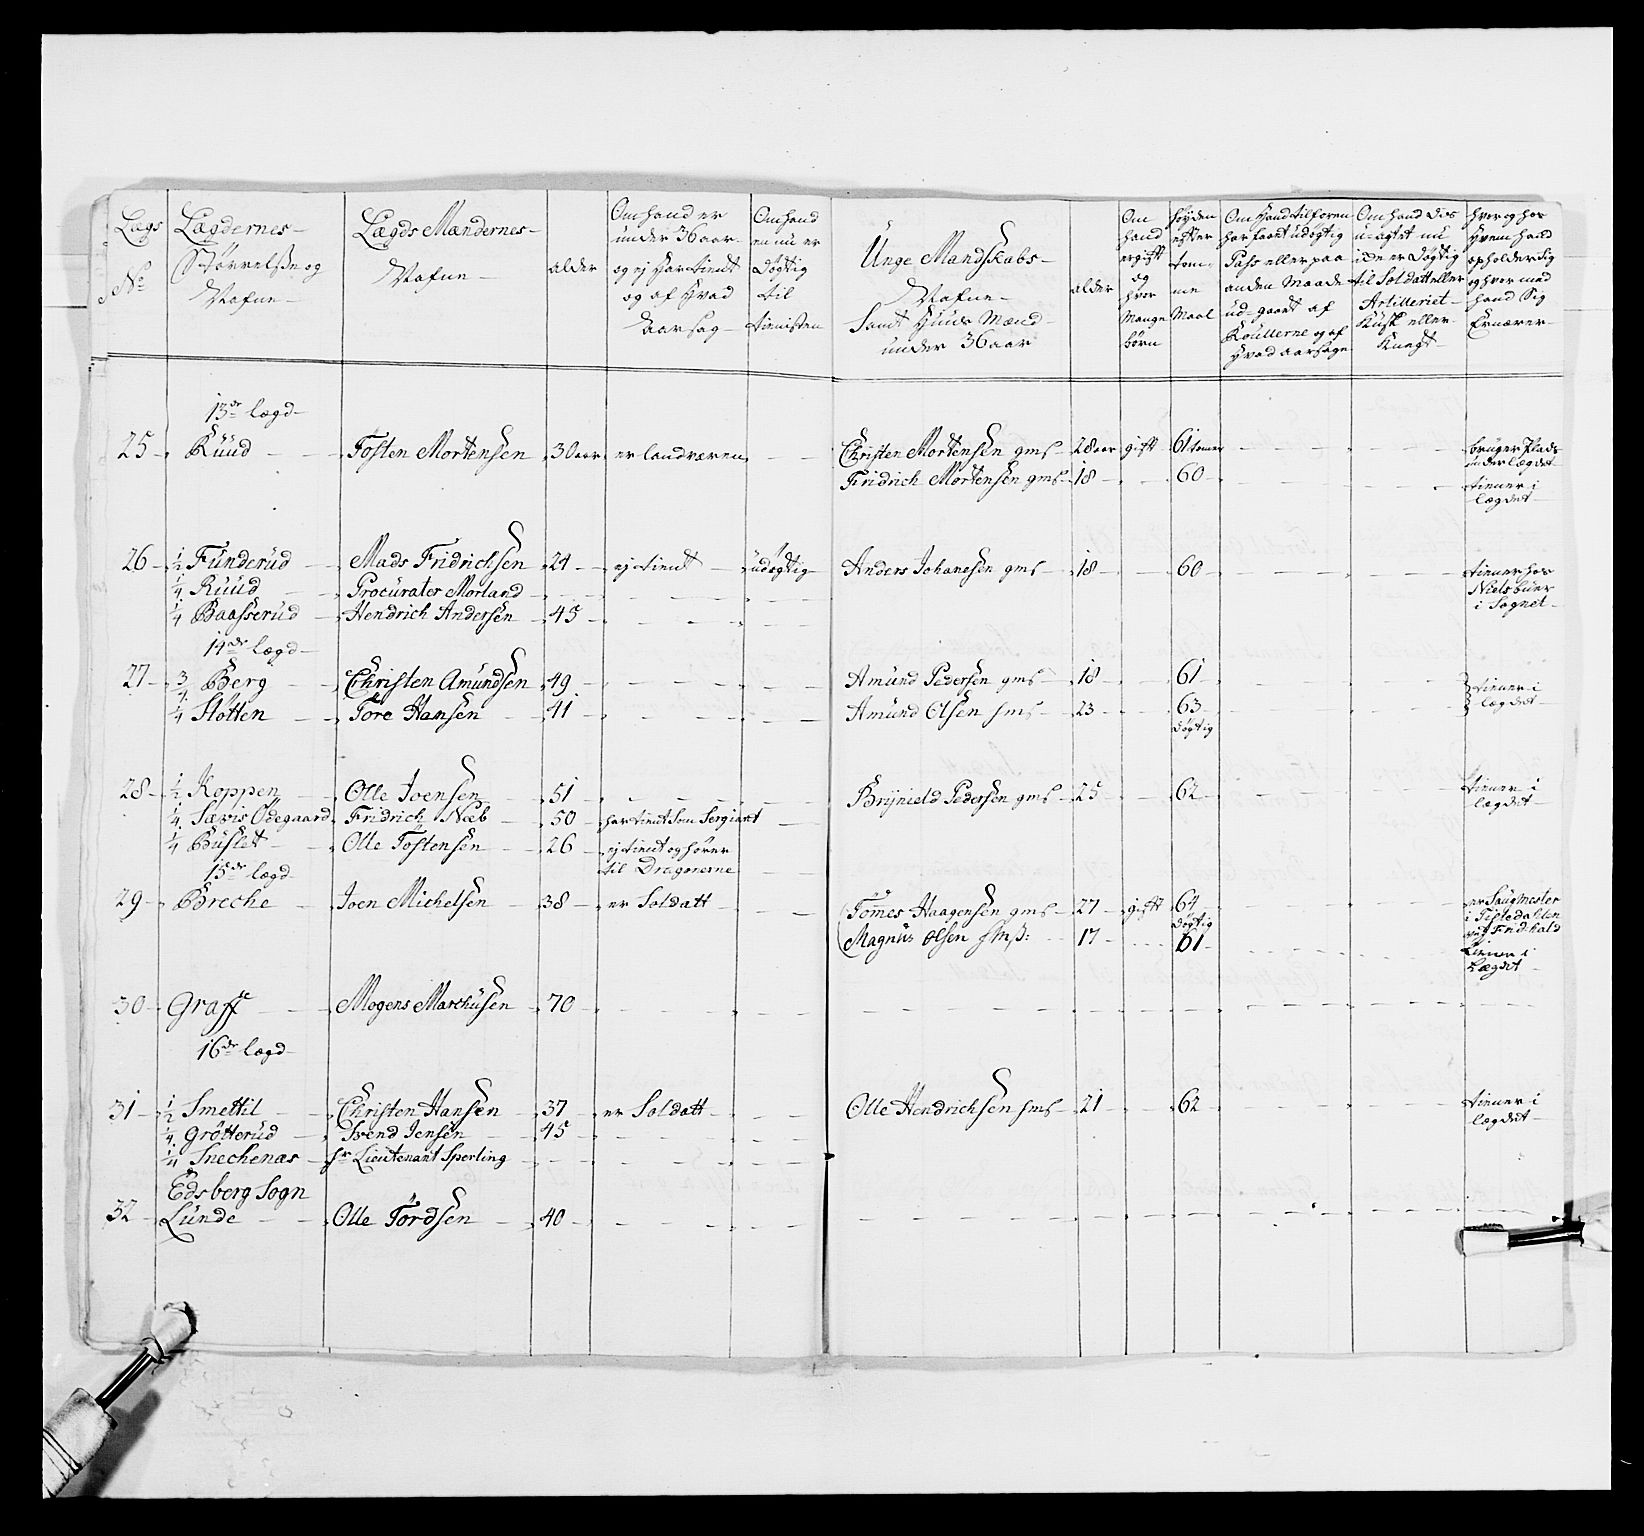 Lægs No
Lægdernes Størrelsse og Nafne
Lægds Mændernes Nafne
alder
Om hand er under 36 aar og ej har tient og af hvad aarsag
Om hand ennu er døgtig til tienisten
Unge Mandskabs Nafne Samt Huus Mænd under 36 aar
alder
Om hand er gift og hvor Mange børn
høyden efter tomme Maal
Om hand tilforen har faaet udøgtig Pass eller paa anden Maade udgaaet af Roullerne og af hvad aarsage
Om hand uagtet nu iche er døgtig til Soldatt eller Artilleriet Kusk eller Knegt
hvor og hos hvem hand opholder Sig og hvor med hand Sig Ernærer
13de lægd
25 Ruud Tosten Mortensen 30 aar er landværen Christen Mortensen gms 28 aar gift 61 tomer bruger Plads under lægdet
Fridrich Mortensen gms 18 60 tiener i lægdet
26 1/2 Funderud Mads Fridrichsen 24 ej tient udøgtig Anders Johanesen gms 18 60 tiener hos Niels buer i Sognet
1/4 Ruud Procurater Morland
1/4 Baasserud Hendrich Andersen 45
14de lægd
27 3/4 Berg Christen Amundsen 49 Amund Pedersen gms 18 61 tiener i lægdet
1/4 Slotten Tore Hansen 41 Amund Olsen sms 23 63 døgtig
28 1/2 Koppen Olle Joensen 51 Brynield Pedersen gms 25 62 tiener i lægdet
1/4 Sævis Ödegaard Fridrich Næb 50 har tient Som Sergiant
1/4 Buslet Olle Tostensen 26 ej tient og hører til Dragonerne
15de lægd
29 Breche Joen Michelsen 38 er Soldatt Tomes Haagensen gms 27 gift 64 døgtig er Saugmester i Tistedahlen ved Fridrhald
Magnus Olsen sms: 17 61 tiener i Lægdet
30 Graff Mogens Marchusen 70
16de lægd
31 1/2 Smettil Christen Hansen 37 er Soldatt Olle Hendrichsen sms 21 62 tiener i lægdet
1/4 Grötterud Svend Jensen 45
1/4 Snechenæs hr Lieutenant Sperling
Edsberg Sogn
32 Lunde Olle Tordsen 40